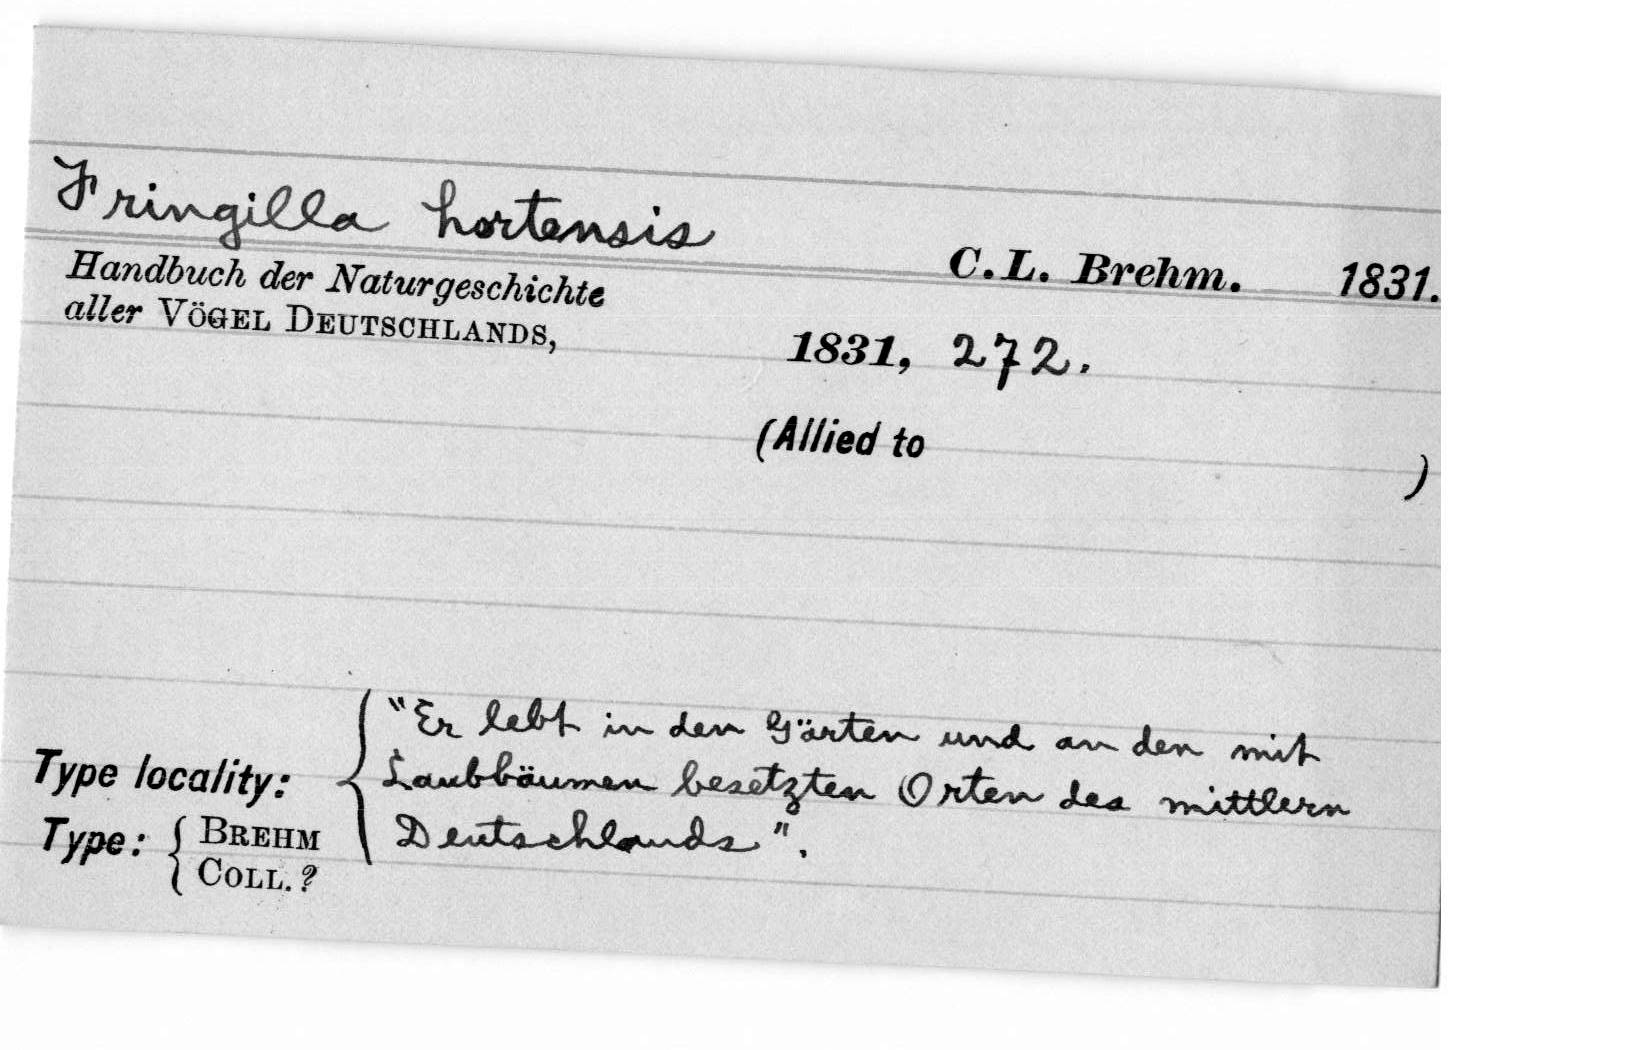 Fringilla hortensis
C. L. Brehm. 1831.
Handbuch der Naturgeschichte
aller VÖGEL DEUTSCHLANDS,
1831, 272.
(Allied to )
Type locality:
"Er lebt in den Gärten und an den mit
Laubbäumen besetzten Orten des mittlern
Deutschlands".
Type: BREHM
COLL. ?